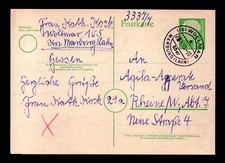 3334/4
Postkarte
Frau Kath. Koch
Wollmar 105
Krs. Marburg/Lahn
Hessen
An
Agila-Apparat
Versand
Herzliche Grüße
Frau Kath. Koch
21a
Rheine W., Abt. 7
Neue Straße 4